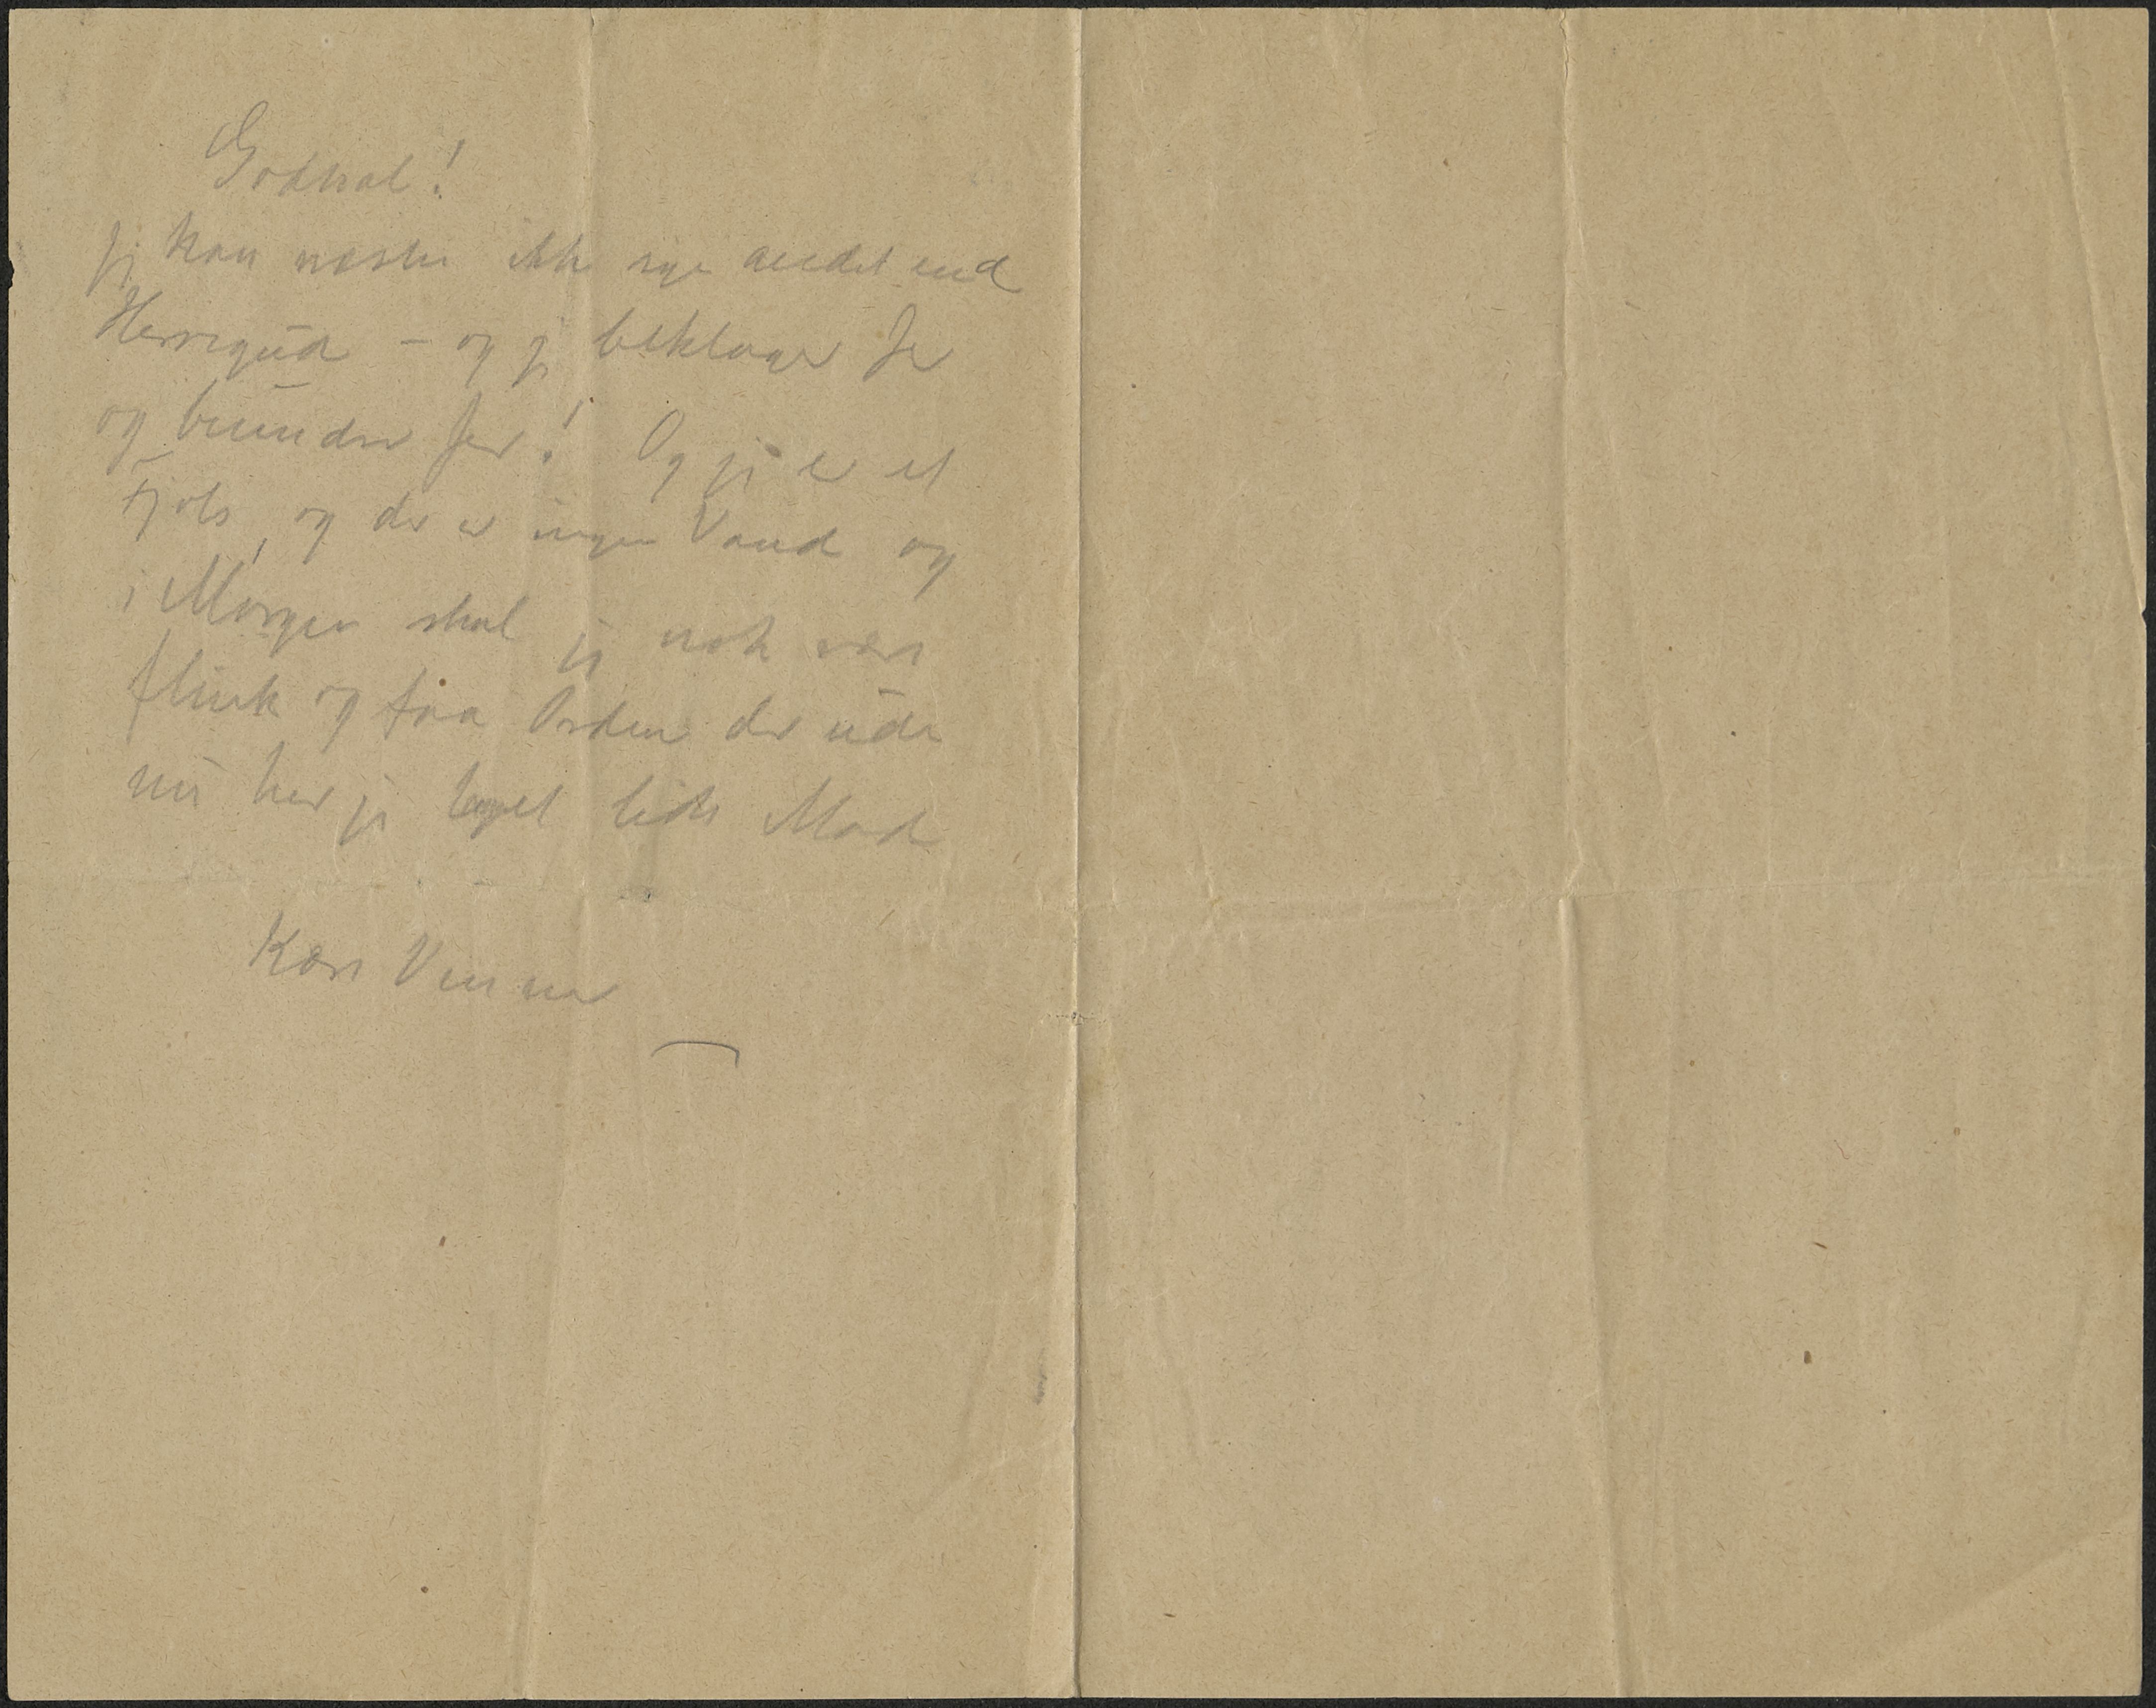 Godhal!
Jeg kan næsten ikke sige andet end
Herregud – og jeg beklager Jer
og beundrer Jer! Og jeg er et
Fjols, og der er ingen Vand og
i Morgen skal jeg nok være
flink og faa Orden der ude
nu har jeg laget lidt Mad
Kære Venner